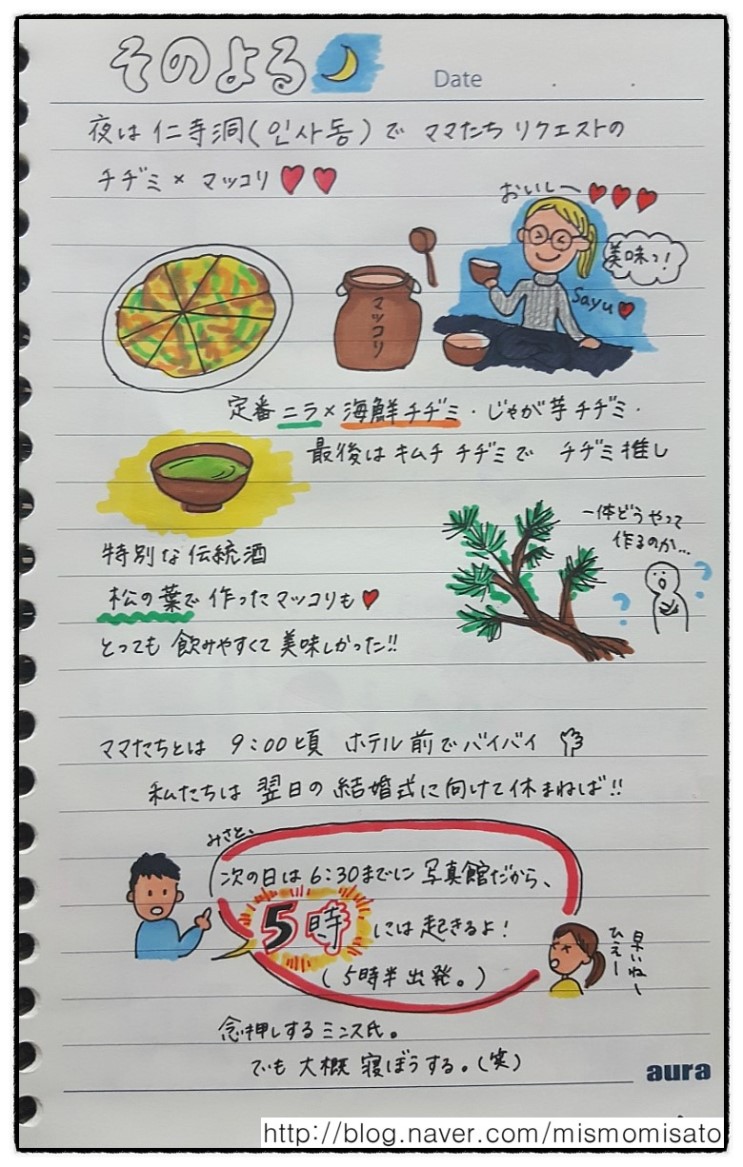 そのよる
Date . .
夜は 仁寺洞(인사동)で ママたち リクエストの
チヂミ × マッコリ ♥♥
おいしー♥♥♥
美味っ!
Sayu♥
マッコリ
定番 ニラ×海鮮チヂミ・じゃが芋チヂミ・
最後は キムチ チヂミで チヂミ推し
一体どうやって
作るのか…
特別な伝統酒
松の葉で 作ったマッコリも♥
とっても 飲みやすくて 美味しかった!!
? ?
ママたちとは 9:00頃 ホテル前でバイバイ
私たちは 翌日の 結婚式に向けて休まねば!!
みさと、
次の日は 6:30までに 写真館だから、
5時 には 起きるよ!
(5時半出発。)
早いねー
ひえー
念押しする ミンス氏。
でも 大概 寝ぼうする。(笑)
aura
http://blog.naver.com/mismomisato